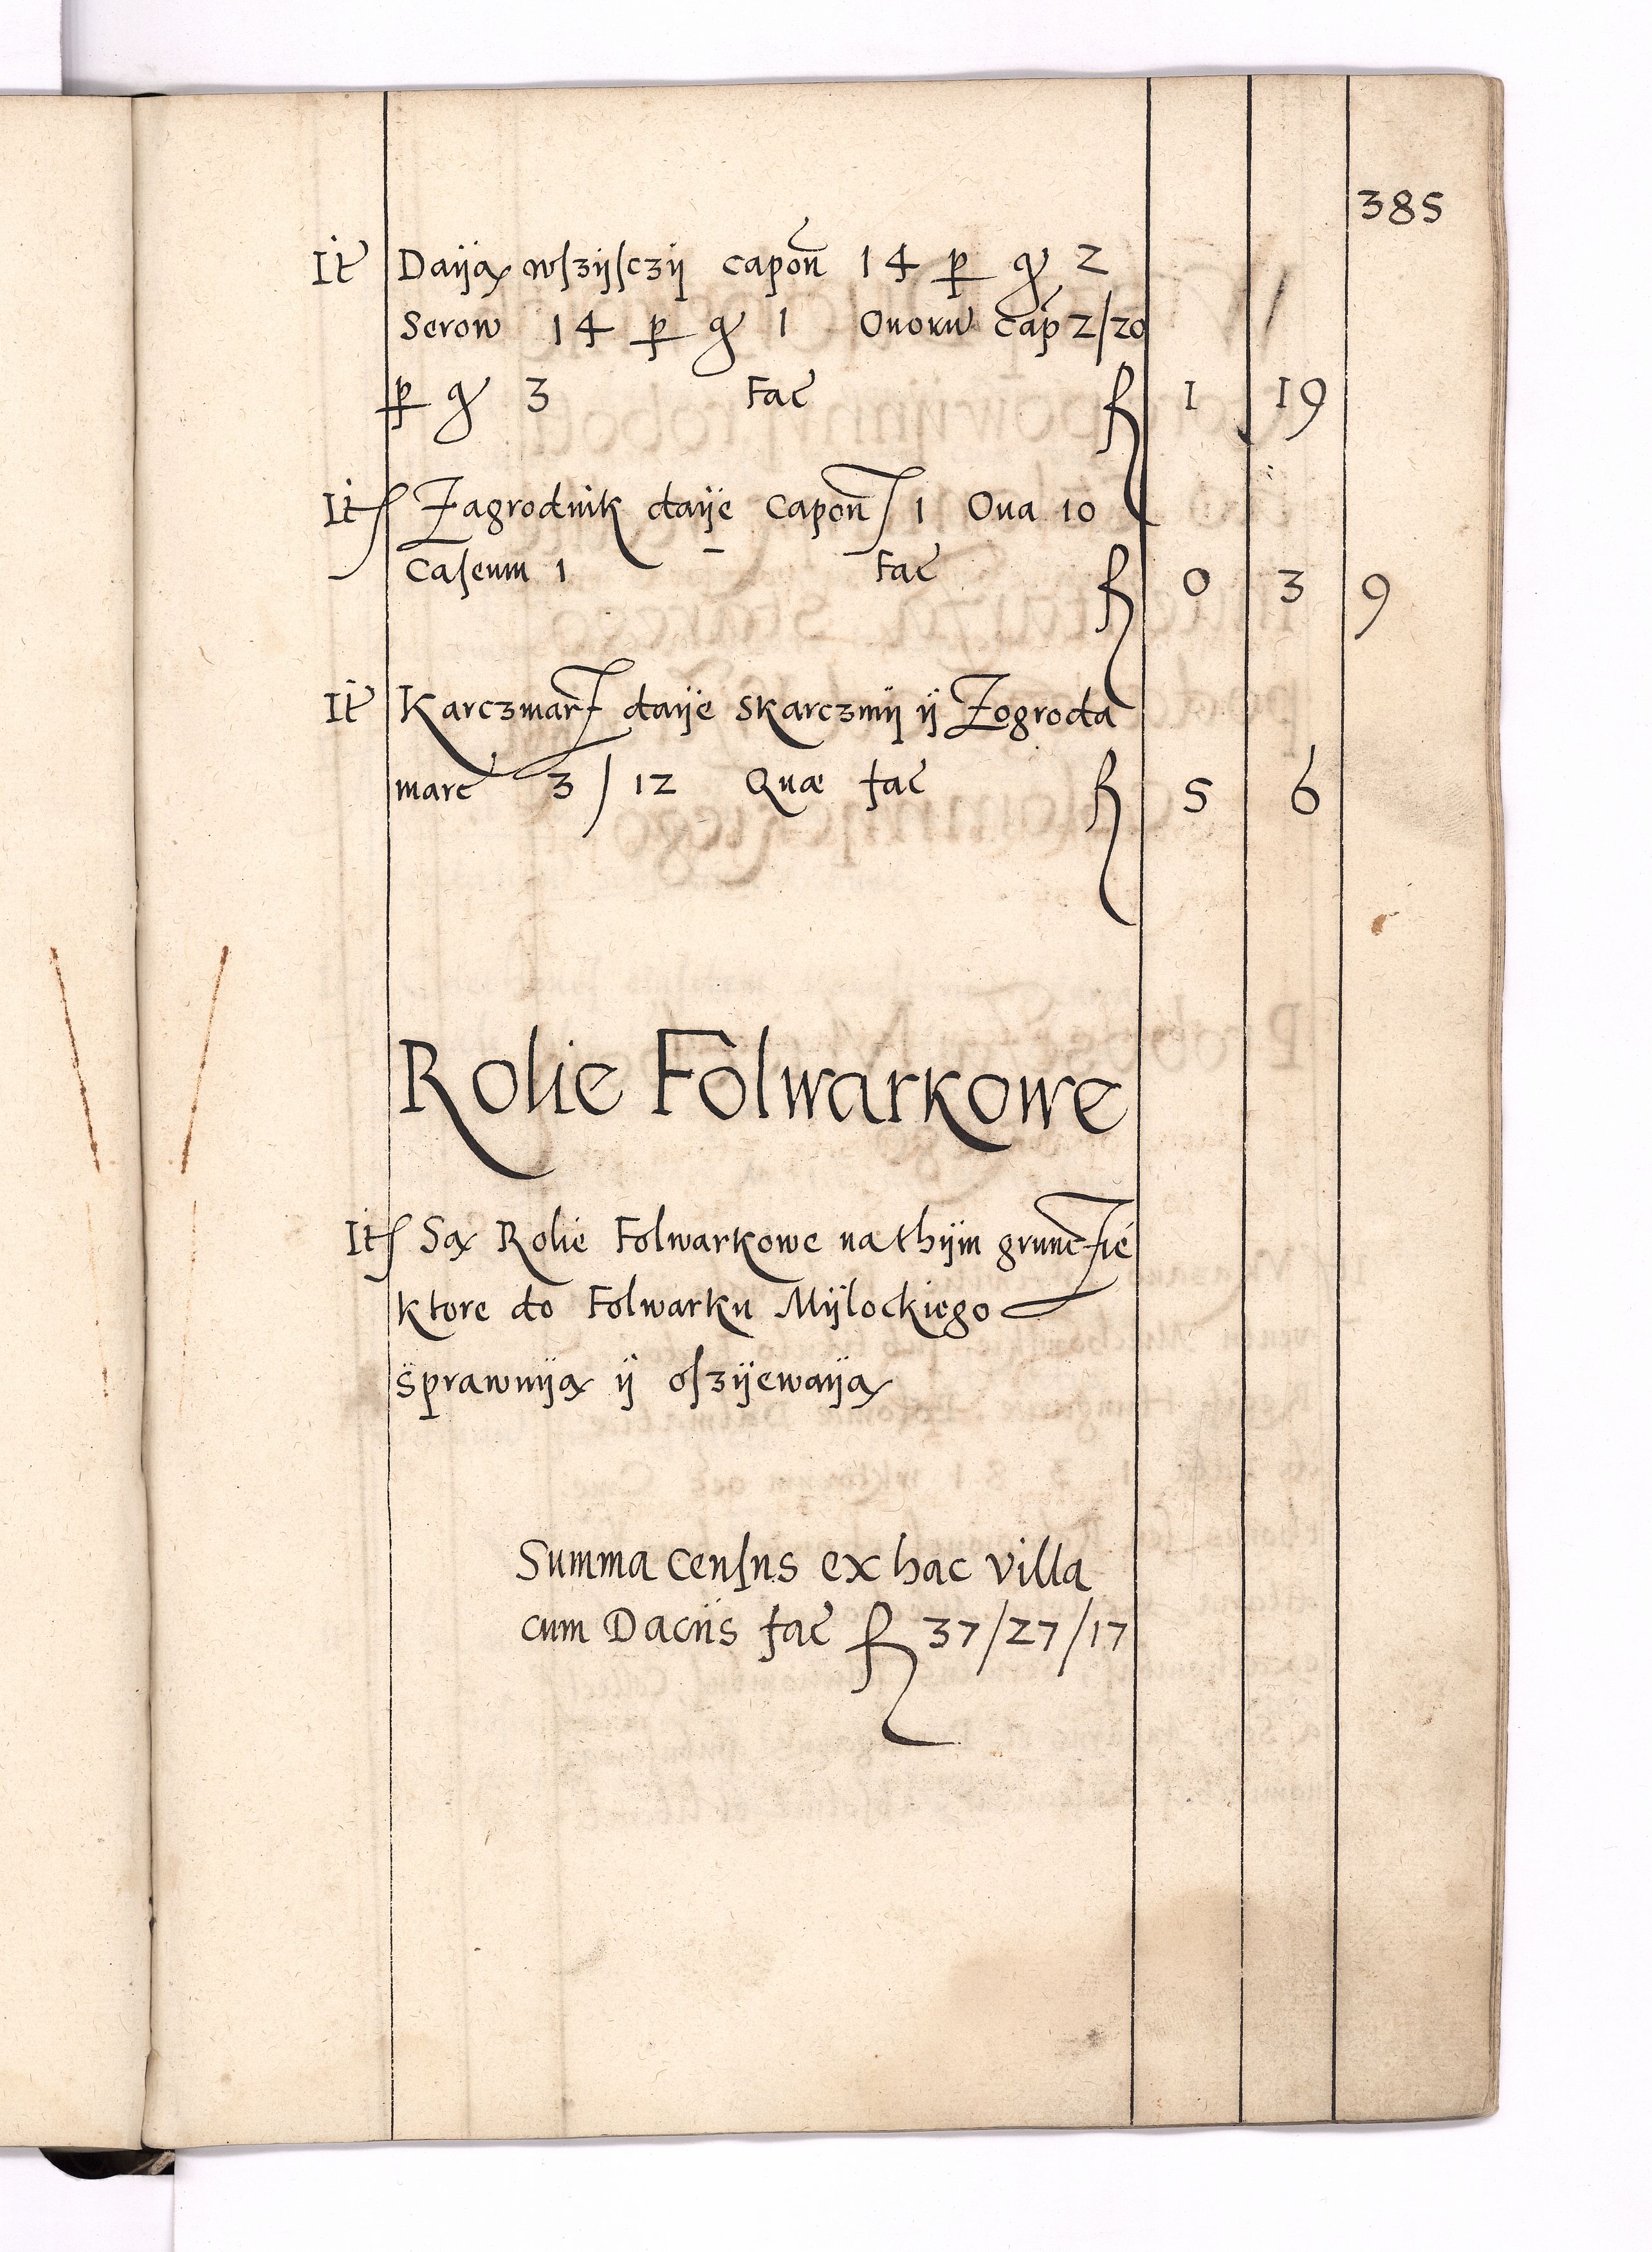 385
It Daÿą wſzÿſczÿ capoñ 14 p gr 2
Serow 14 p gr 1 Ouorū cap 2/20
p gr 3 Fac̄ fl 1 19
It Zagrodnik daÿe Capoñ 1 Oua 10
Caſeum 1 Fac̄ fl 0 3 9
It Karczmarz daÿe Skarczmÿ ÿ Zogroda
marc̄ 3/12 Quæ fac̄ fl 5 6
Rolie Folwarkowe
It Są Rolie Folwarkowe na thÿm grunc̄ie
ktore do Folwarku Mÿlockiego
sprawuÿą ÿ oſzÿewaÿą
Summa cenſus ex hac villa
cum Daciis fac̄ fl 37/27/17